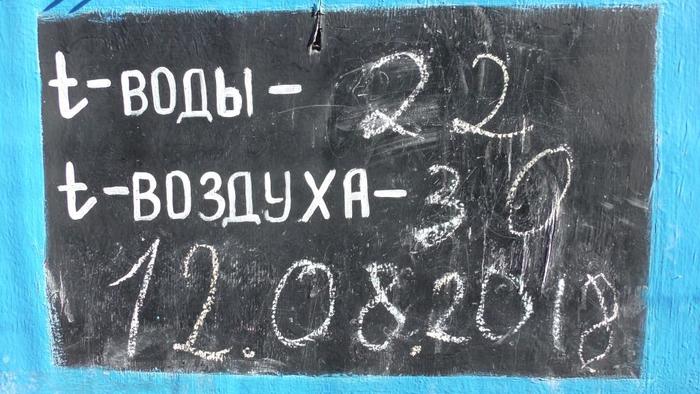 t-ВОДЫ- 22
t-ВОЗДУХА- 30
12.08.2018